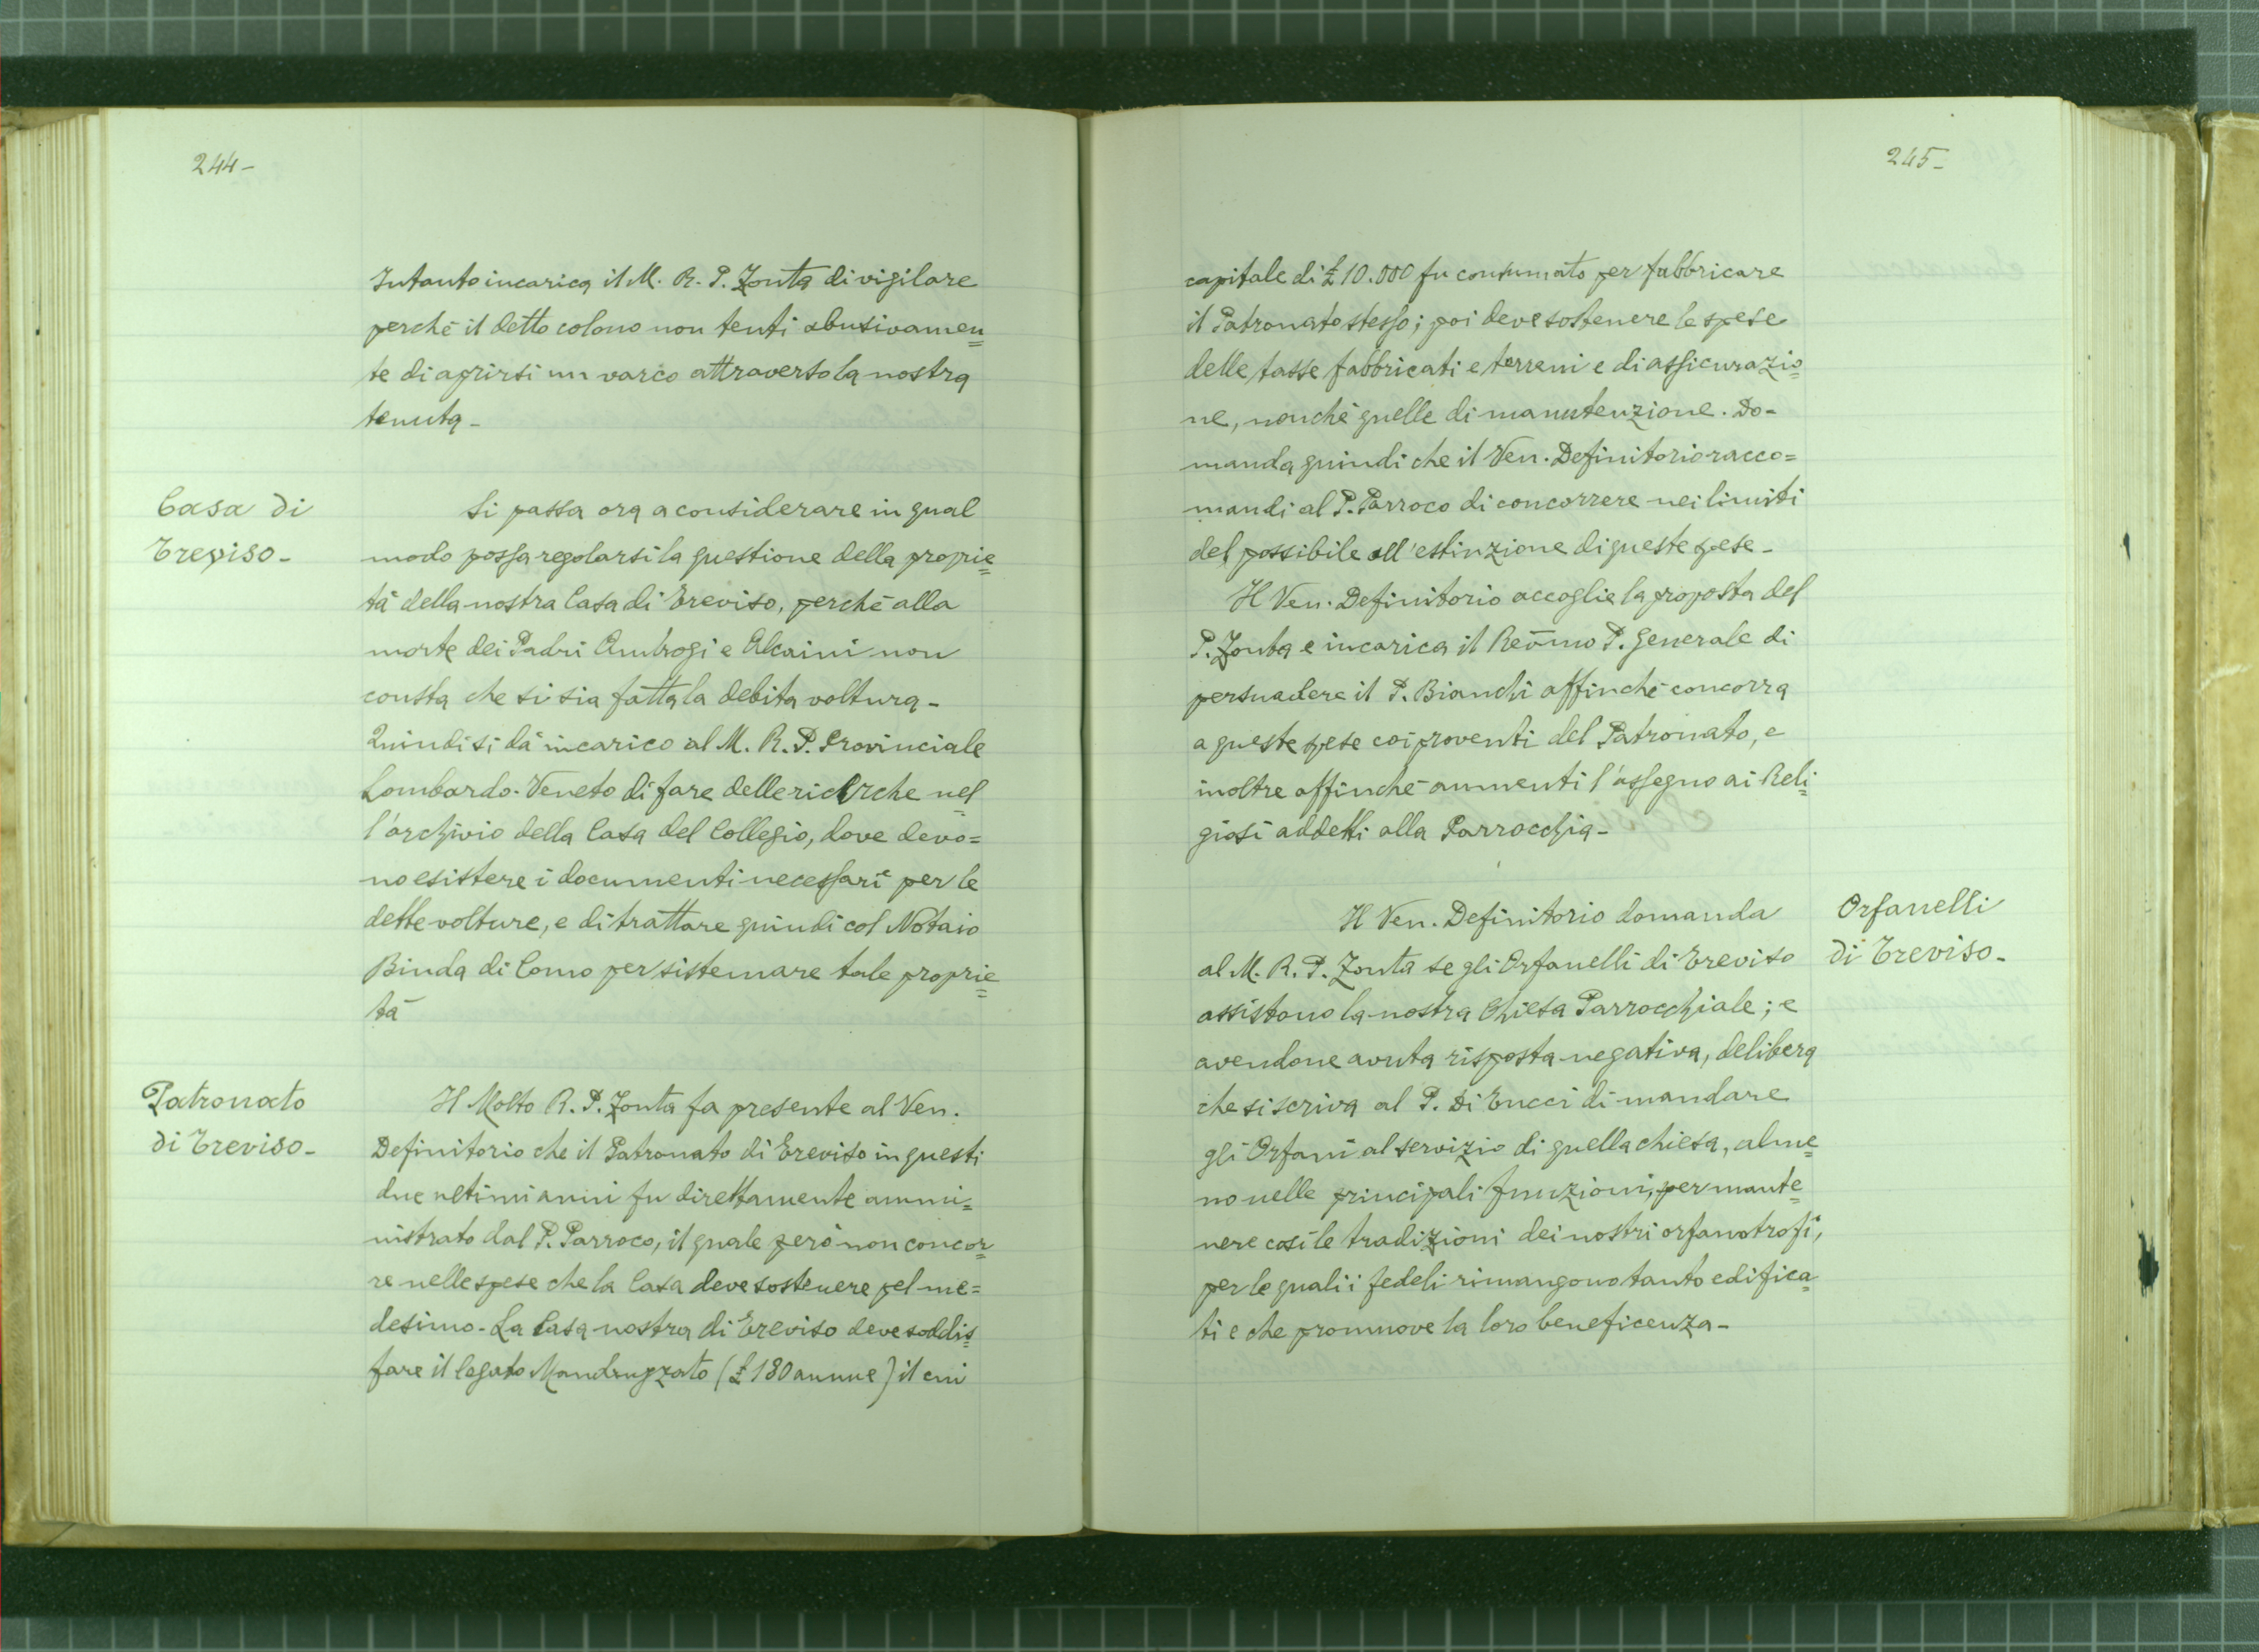 244-
Intanto incarica il M. R. P. Zonta di vigilare
perchè il detto colono non tenti abusivamen=
te di aprirsi un varco attraverso la nostra
tenuta-
Casa di
Treviso-
Si passa ora a considerare in qual
modo possa regolarsi la questione della proprie=
tà della nostra Casa di Treviso, perchè alla
morte dei Padri Ambrogi e Alcaini non
consta che si sia fatta la debita voltura-
Quindi si dà incarico al M. R. P. Provinciale
Lombardo-Veneto di fare delle ricerche nel=
l'archivio della Casa del Collegio, dove devo=
no esistere i documenti necessari per le
dette volture, e di trattare quindi col Notaio
Binda di Como per sistemare tale proprie=
tà
Patronato
di Treviso-
Il Molto R. P. Zonta fa presente al Ven.
Definitorio che il Patronato di Treviso in questi
due ultimi anni fu direttamente ammi=
nistrato dal P. Parroco, il quale però non concor=
re nelle spese che la Casa deve sostenere pel me=
desimo- La Casa nostra di Treviso deve soddis=
fare il legato Mandruzzato (£ 180 annue) il cui
245-
capitale di £ 10.000 fu consumato per fabbricare
il Patronato stesso; poi deve sostenere le spese
delle tasse fabbricati e terreni e di assicurazio=
ne, nonchè quelle di manutenzione. Do-
manda quindi che il Ven. Definitorio racco=
mandi al P. Parroco di concorrere nei limiti
del possibile all'estinzione di queste spese-
Il Ven. Definitorio accoglie la proposta del
P. Zonta e incarica il Rev̄mo P. Generale di
persuadere il P. Bianchi affinchè concorra
a queste spese coi proventi del Patronato, e
inoltre affinchè aumenti l'assegno ai Reli=
giosi addetti alla Parrocchia-
Il Ven. Definitorio domanda
al M. R. P. Zonta se gli Orfanelli di Treviso
assistono la nostra Chiesa Parrocchiale; e
avendone avuta risposta negativa, delibera
che si scriva al P. Di Tucci di mandare
gli Orfani al servizio di quella chiesa, alme=
no nelle principali funzioni, per mante=
nere così le tradizioni dei nostri orfanotrofi,
per le quali i fedeli rimangono tanto edifica=
ti e che promuove la loro beneficenza-
Orfanelli
di Treviso-